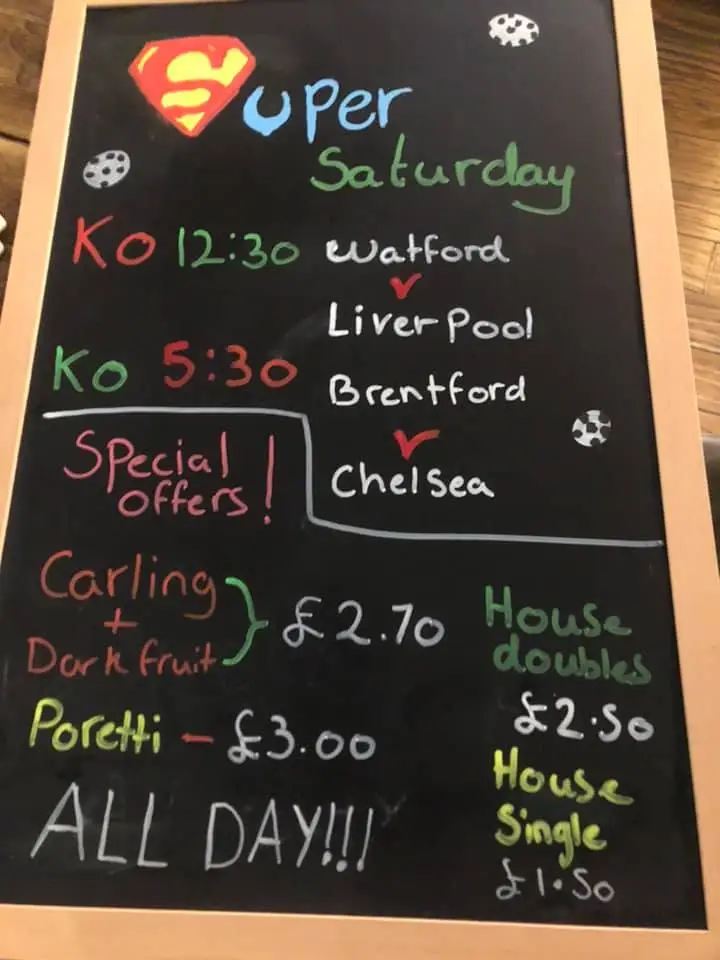 Super
Saturday
KO 12:30 Watford
v
Liverpool
KO 5:30 Brentford
v
Chelsea
Special
offers!
Carling
+
Dark fruit
£2.70
Poretti - £3.00
ALL DAY!!!
House
doubles
£2.50
House
Single
£1.50